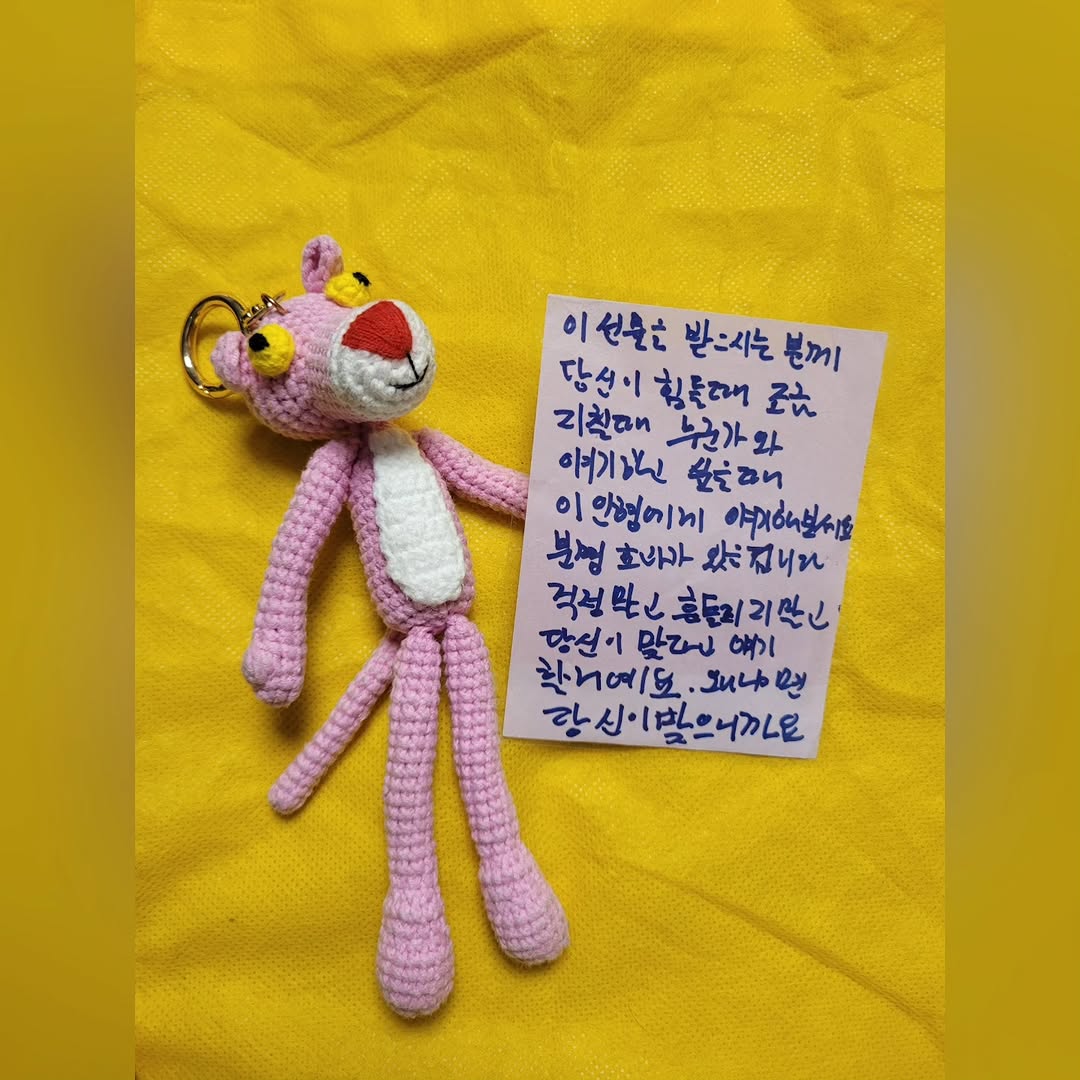 이 선물을 받으시는 분께
당신이 힘들때 조금
지칠때 누군가와
얘기하고 싶을때
이 인형에게 얘기해보세요
분명 효과가 있을겁니다
걱정말고 흔들리지말고
당신이 맞다고 얘기
할거예요. 왜냐이면
당신이맞으니까요